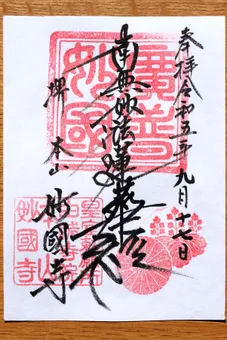 奉拝令和五年九月十七日
南無妙法蓮華経
堺 本山
妙國寺
廣普
妙國
妙國寺